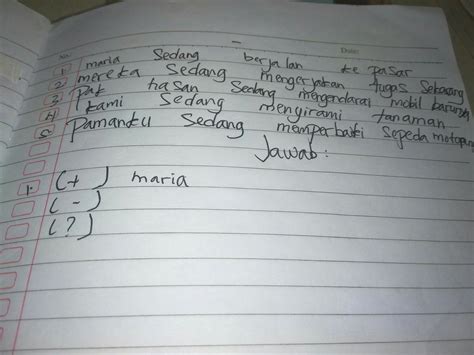 No.
Date:
1 maria Sedang berjalan ke pasar
2 mereka Sedang mengerjakan tugas Sekarang
3 Pak hasan Sedang mengendarai mobil
4 kami Sedang mengirami tanaman
5 Pamanku Sedang memperbaiki Sepeda
Jawab :
1. (+) maria
(-)
(?)